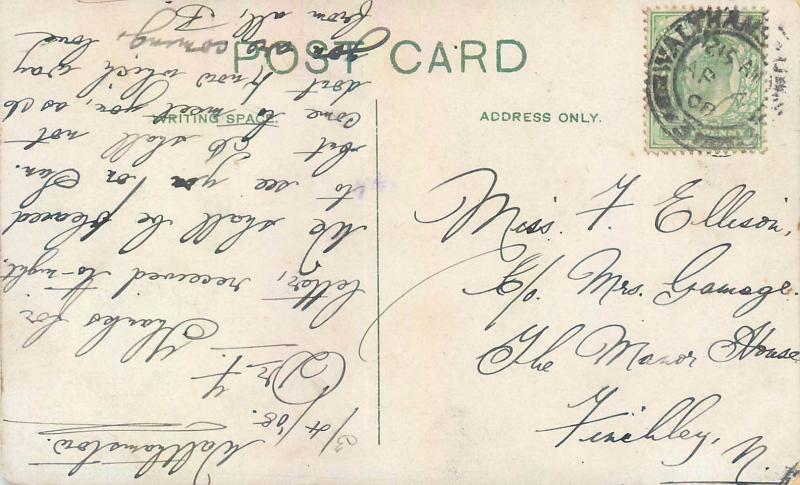 POST CARD
WRITING SPACE.
ADDRESS ONLY.
WALTHAMS
12.15 AM
AP
08
PENNY
Miss. F. Ellison,
C/o. Mrs. Gamage.
The Manor House
Finchley, N.
Walthamstow.
3/4/08.
Dr. F.
Thanks for
letter, received to-night,
We shall be pleased
to see you on Sun.
but
shall not
come to meet you, as
dont know which way
you are coming,
love
from all, F.